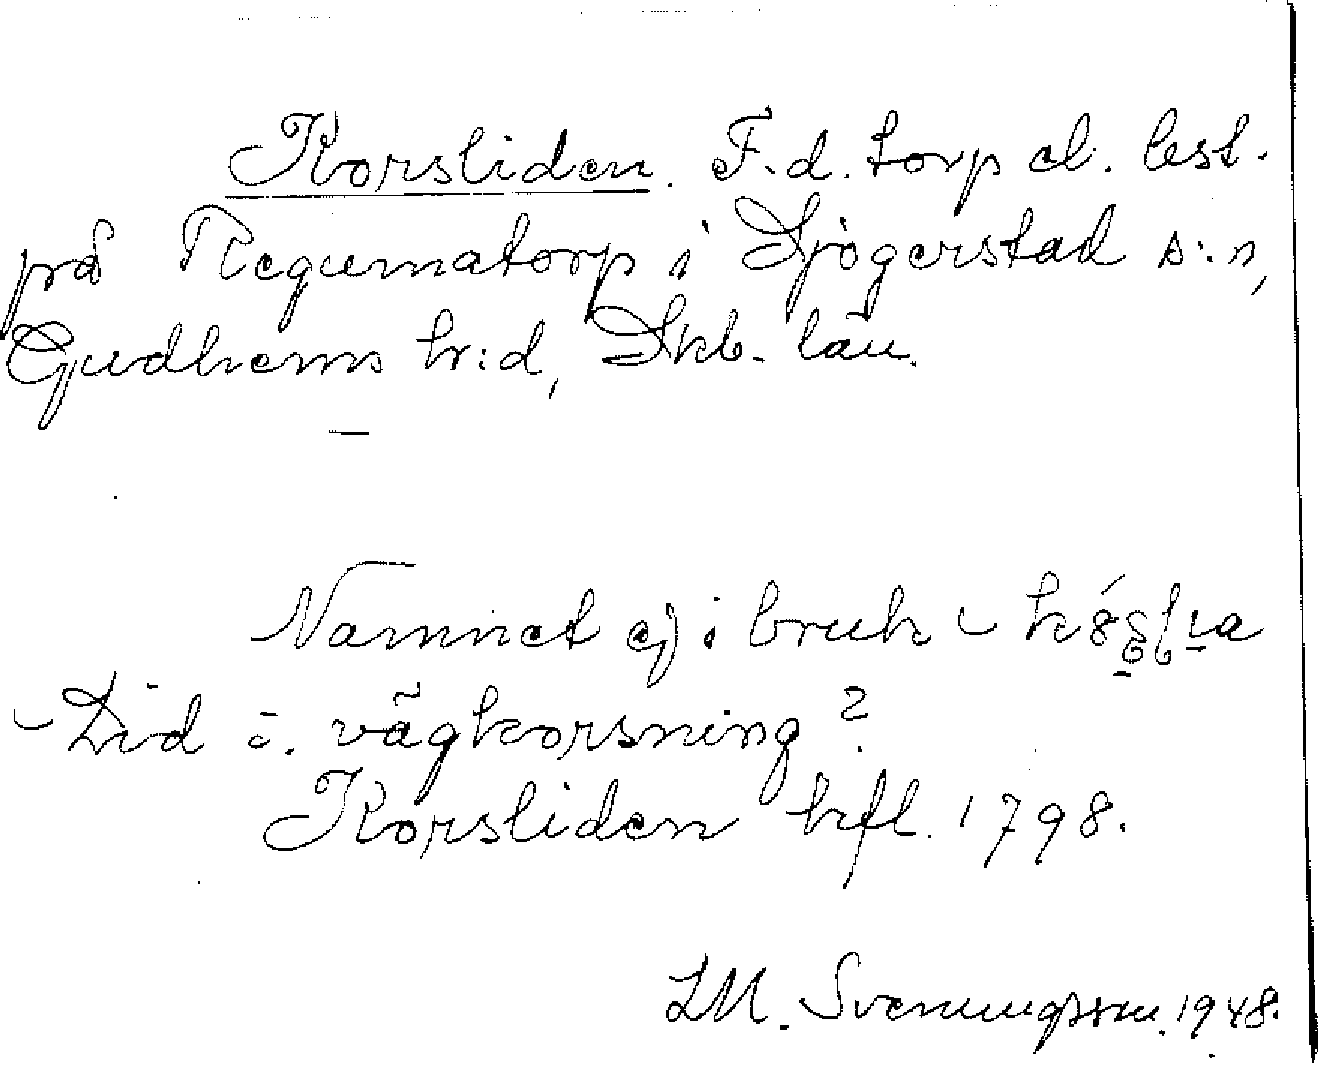 Korsliden. F.d. torp el. lest.
på Regumatorp i Sjögerstad s:n,
Gudhems hr:d, Skb. län.
—
Namnet ej i bruk -
- Lid ö. vägkorsning?
Korsliden hfl. 1798.
LM. Svenungsson. 1948.